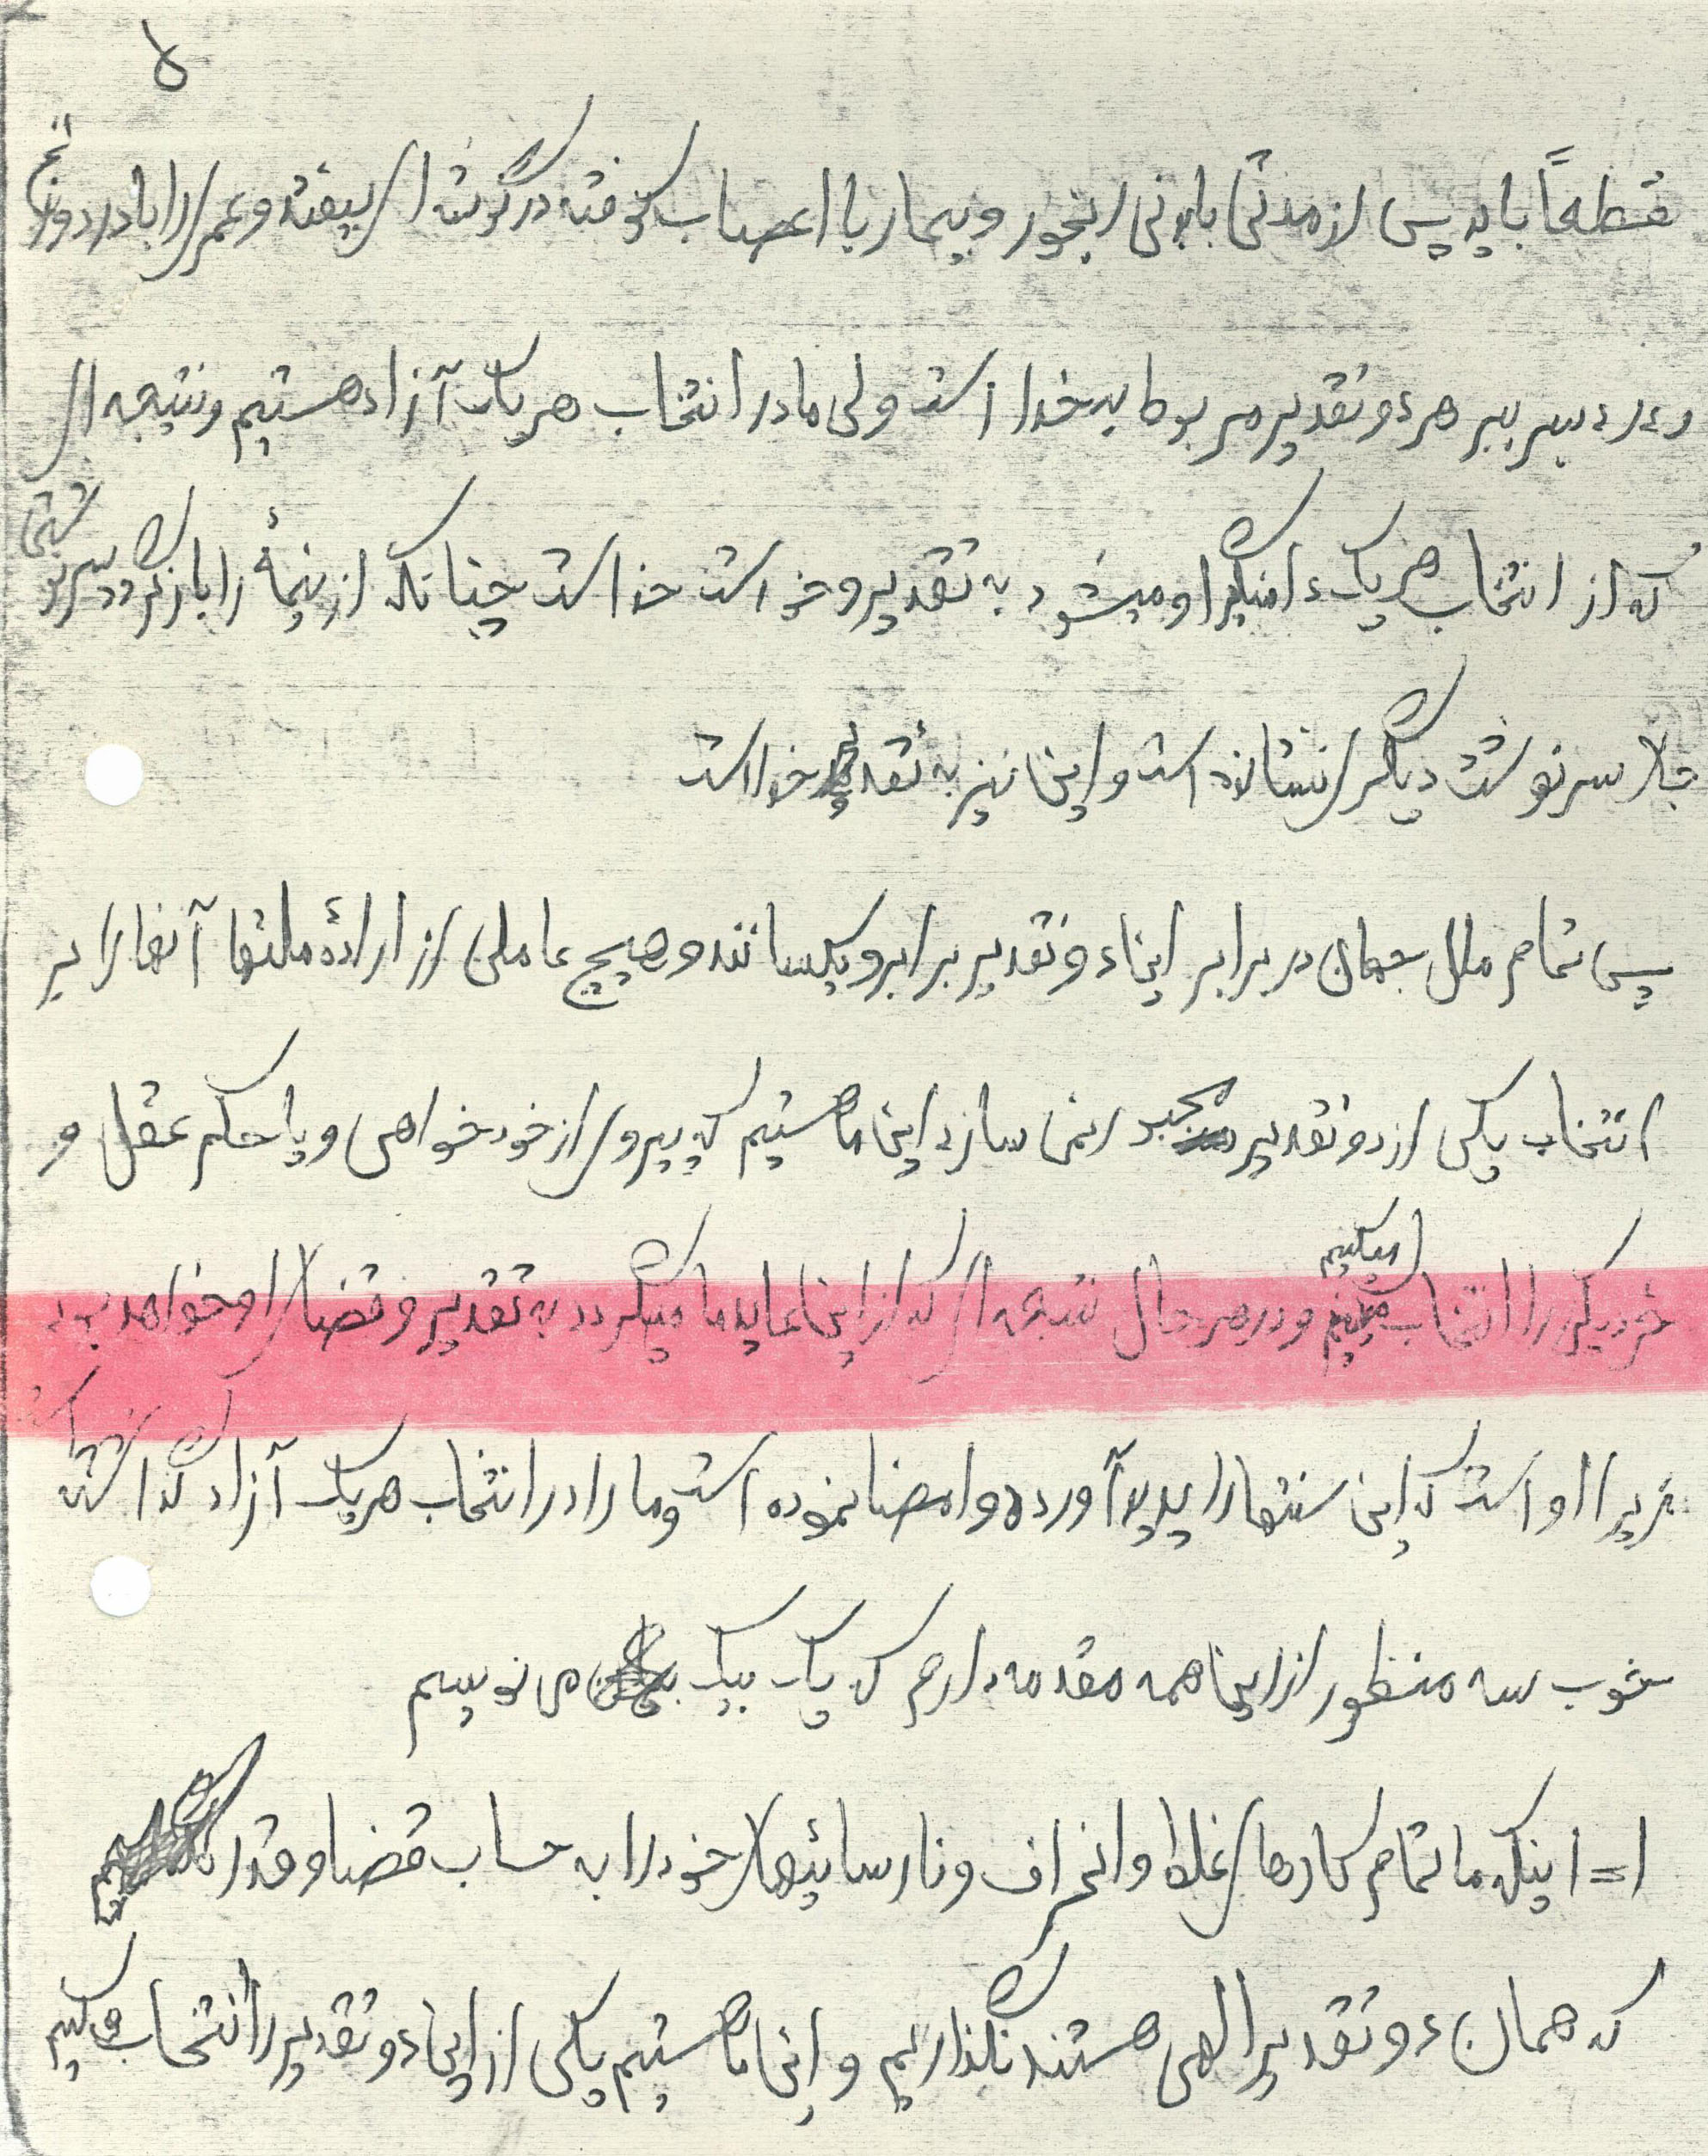 ۵
قطعاً باید پس از مدتی با بدنی رنجور و بیمار با اعصاب کوفته در گوشه ای بیفتد و عمری را با درد و رنج
بسر ببر هر دو تقدیر مربوط به خدا است ولی ما در انتخاب هر یک آزاد هستیم و نتیجه ای
که از انتخاب هر یک دامنگیر او میشود به تقدیر و خواست خدا است چنانکه از نیمۀ راه بازگردد سرنوشتی
جای سرنوشت دیگری نشانده است و این نیز به تقدیر خدا است
پس تمام ملل جهان در برابر این دو تقدیر برابر و یکسانند و هیچ عاملی از ارادۀ ملتها آنها را بر
انتخاب یکی از دو تقدیر مجبور نمی سازد این ما هستیم که پیروی از خودخواهی و یا حکم عقل و
خرد یکی را انتخاب میکنیم و در هر حال نتیجه ای که از این عاید ما میگردد به تقدیر و قضای او خواهد بود
زیرا او است که این سنتها را پدید آورده و امضا نموده است و ما را در انتخاب هر یک آزاد گذاشته است
خوب سه منظور از این همه مقدمه دارم که یک بیک می نویسم
۱= اینکه ما تمام کارهای غلط و انحراف و نارسائیهای خود را به حساب قضا و قدر
که همان دو تقدیر الهی هستند نگذاریم و این ما هستیم یکی از این دو تقدیر را انتخاب میکنیم